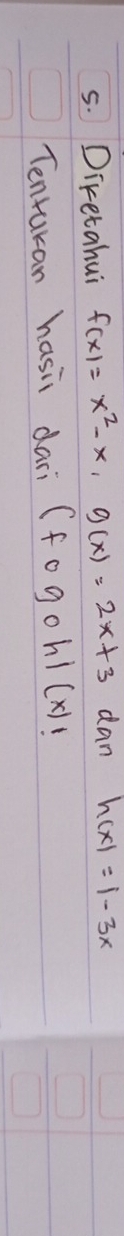 5. Diketahui f(x) = x² - x, g(x) = 2x + 3 dan h(x) = 1 - 3x
Tentukan hasil dari (f o g o h) (x)!